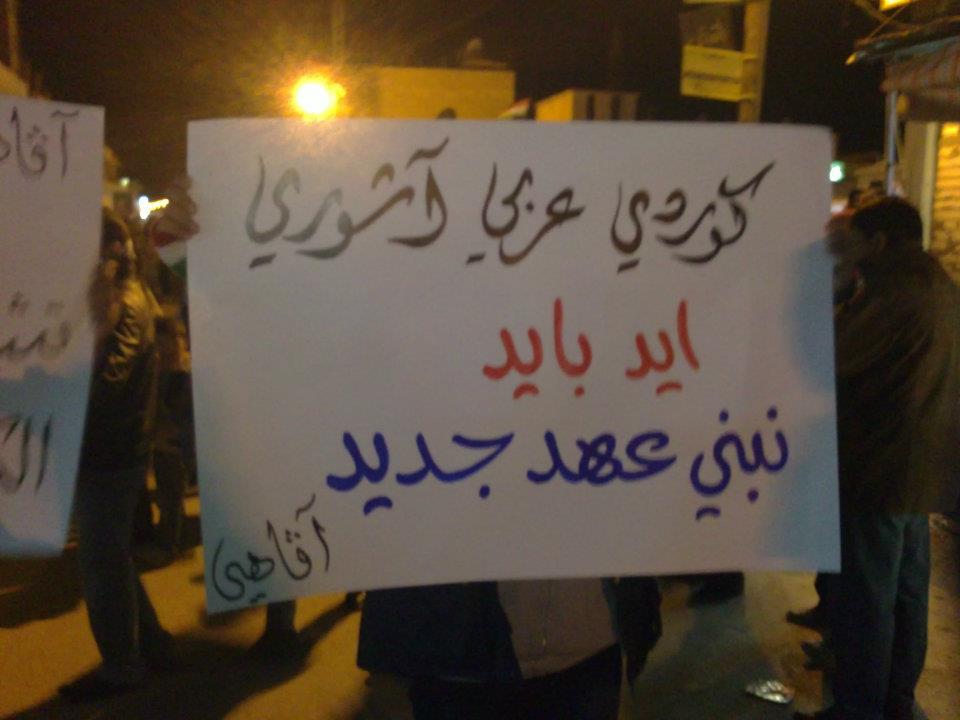 كوردي عربي آشوري
ايد بايد
نبني عهد جديد
آڤاهيي
آڤا